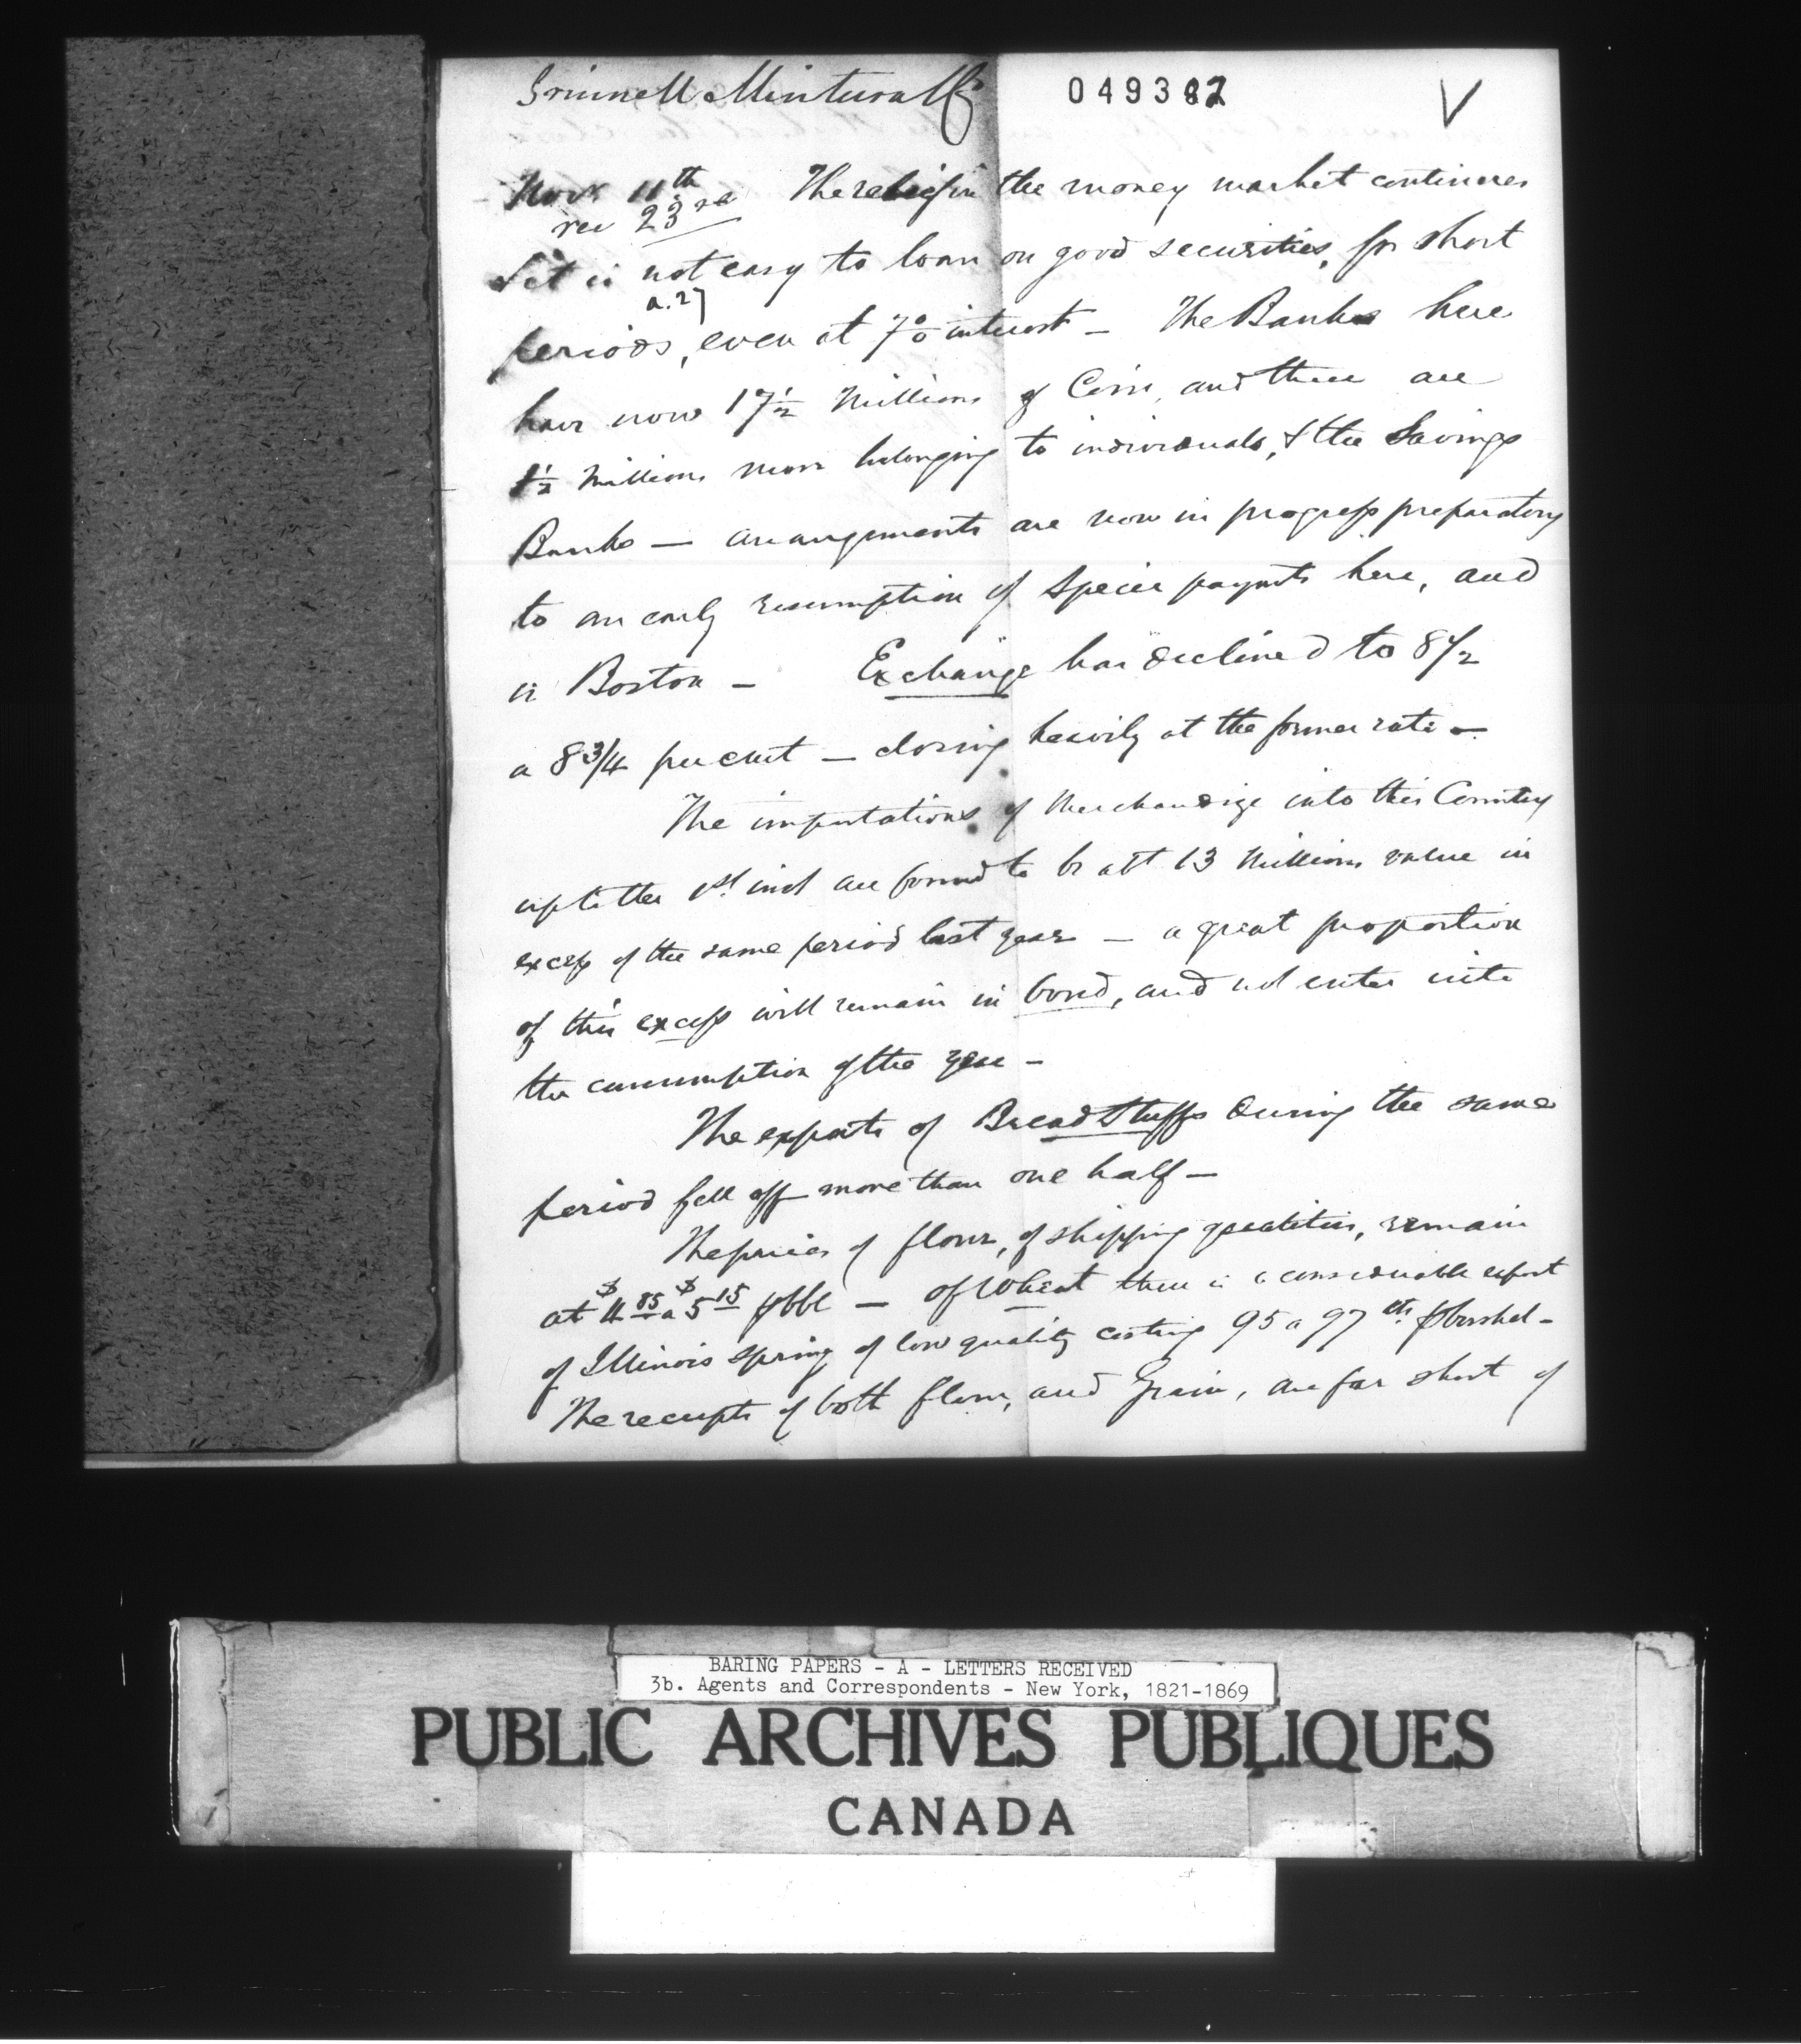 Grinnell Minturn & Co
049382
V
Novr 11th The relief in the money market continues
rec 23rd
& it is not easy to loan on good securities, for short
a. 27
periods, even at 7% interest — The Banks here
have now 17½ Millions of Coin, and there are
1½ Millions more belonging to individuals, & the Savings
Banks — arrangements are now in progress preparatory
to an early resumption of Specie paymts here, and
in Boston — Exchange has declined to 8½
a 8¾ per cent — closing heavily at the former rate —
The importations of Merchandize into this Country
up to the 1st inst are found to be abt 13 Millions value in
excess of the same period last year — a great proportion
of this excess will remain in bond, and not enter into
the consumption of the year —
The exports of Bread Stuffs during the same
period fell off more than one half —
The prices of flour, of shipping qualities, remain
at $4 85 a $5 15 p bbl — of Wheat there is a considerable export
of Illinois spring of low quality costing 95 a 97 cts p bushel —
The receipts of both flour, and Grain, are far short of
BARING PAPERS - A - LETTERS RECEIVED
3b. Agents and Correspondents - New York, 1821-1869
PUBLIC ARCHIVES PUBLIQUES
CANADA